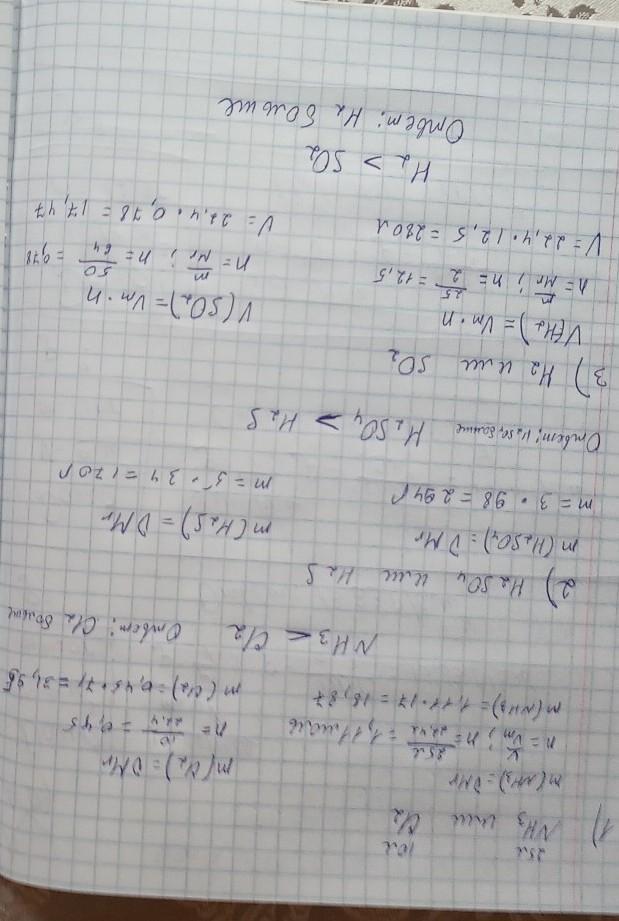 25л 10л
1) NH3 или Cl2
m(NH3)= DMr
n = V/Vm ; n = 25л/22,4л = 1,11 моль
m(NH3)= 1,11 · 17 = 18,87
m(Cl2)= DMr
n = 10/22,4 = 0,45
m(Cl2)= 0,45 · 71 = 31,95
NH3 < Cl2 Ответ: Cl2 больше
2) H2SO4 или H2S
m(H2SO4)= DMr
m = 3 · 98 = 294г
m(H2S) = DMr
m = 5 · 34 = 170г
Ответ: H2SO4 больше H2SO4 > H2S
3) H2 или SO2
V(H2)= Vm · n
n = m/Mr ; n = 25/2 = 12,5
V = 22,4 · 12,5 = 280л
V(SO2)= Vm · n
n = m/Mr ; n = 50/64 = 0,78
V = 22,4 · 0,78 = 17,47
H2 > SO2
Ответ: H2 больше